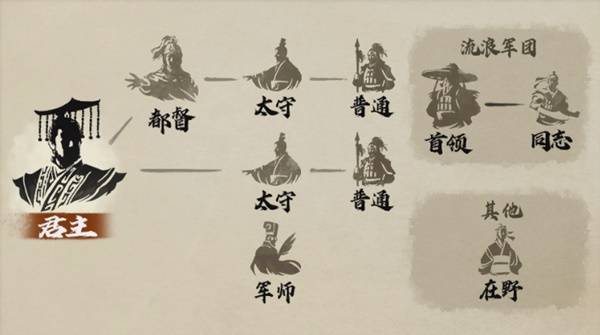 君主
都督
太守
普通
太守
普通
军师
流浪军团
首领
同志
其他
在野